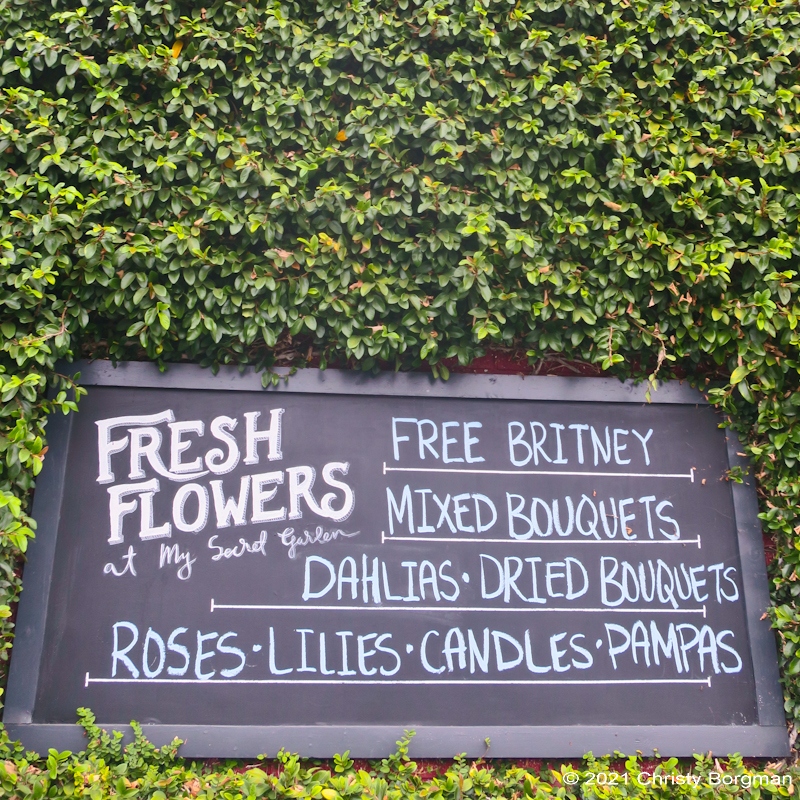 FRESH
FLOWERS
at My Secret Garden
FREE BRITNEY
MIXED BOUQUETS
DAHLIAS · DRIED BOUQUETS
ROSES · LILIES · CANDLES · PAMPAS
© 2021 Christy Borgman